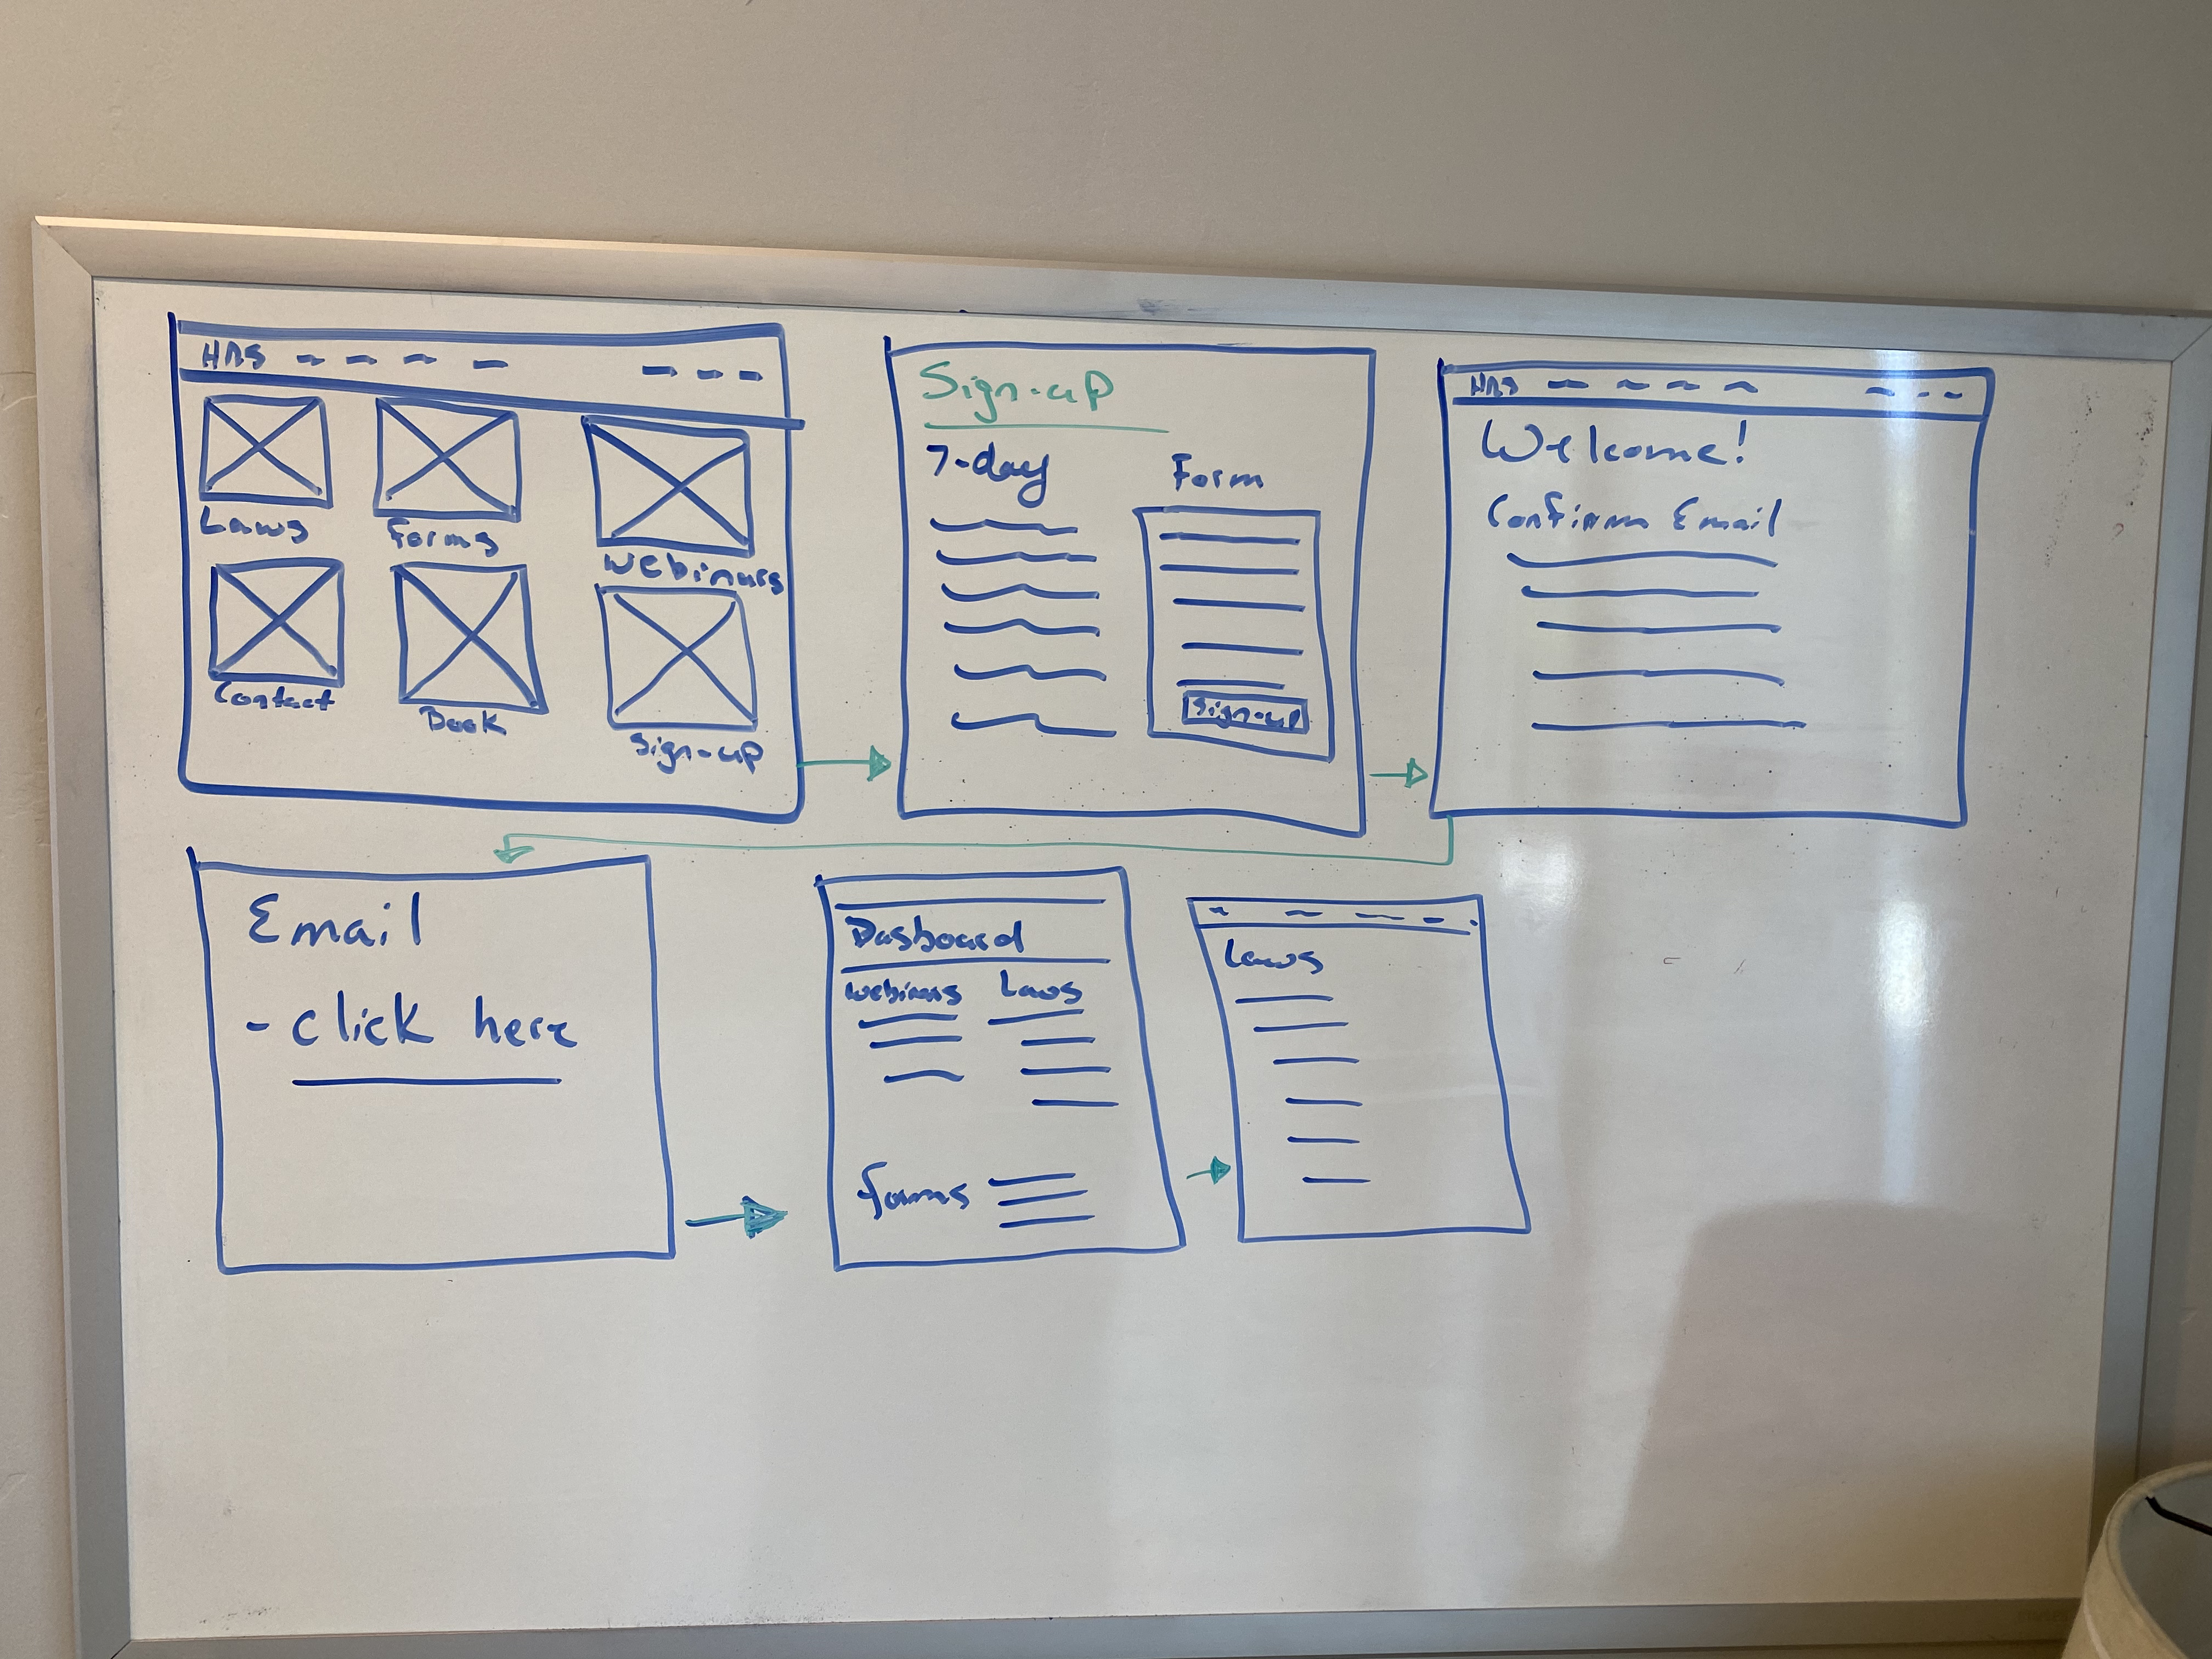 HRS
Laws
Forms
Webinars
Contact
Book
Sign-up
Sign-up
7-day
Form
Sign-up
HRS
Welcome!
Confirm Email
Email
- click here
Dasboard
Webinars
Laws
forms
Laws